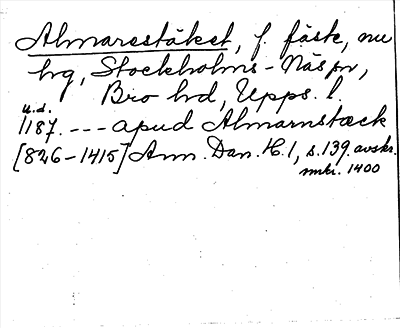 Almarestäket, f. fäste, nu
hg, Stockholms-Näs sn,
Bro hd, Upps. l.
u.d.
1187. --- apud Almarnstæck
[826-1415] Ann. Dan. H. 1, s. 139. avskr.
mkr. 1400